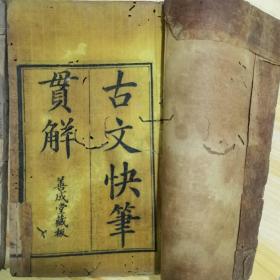 古文快筆
貫解
善成堂藏板